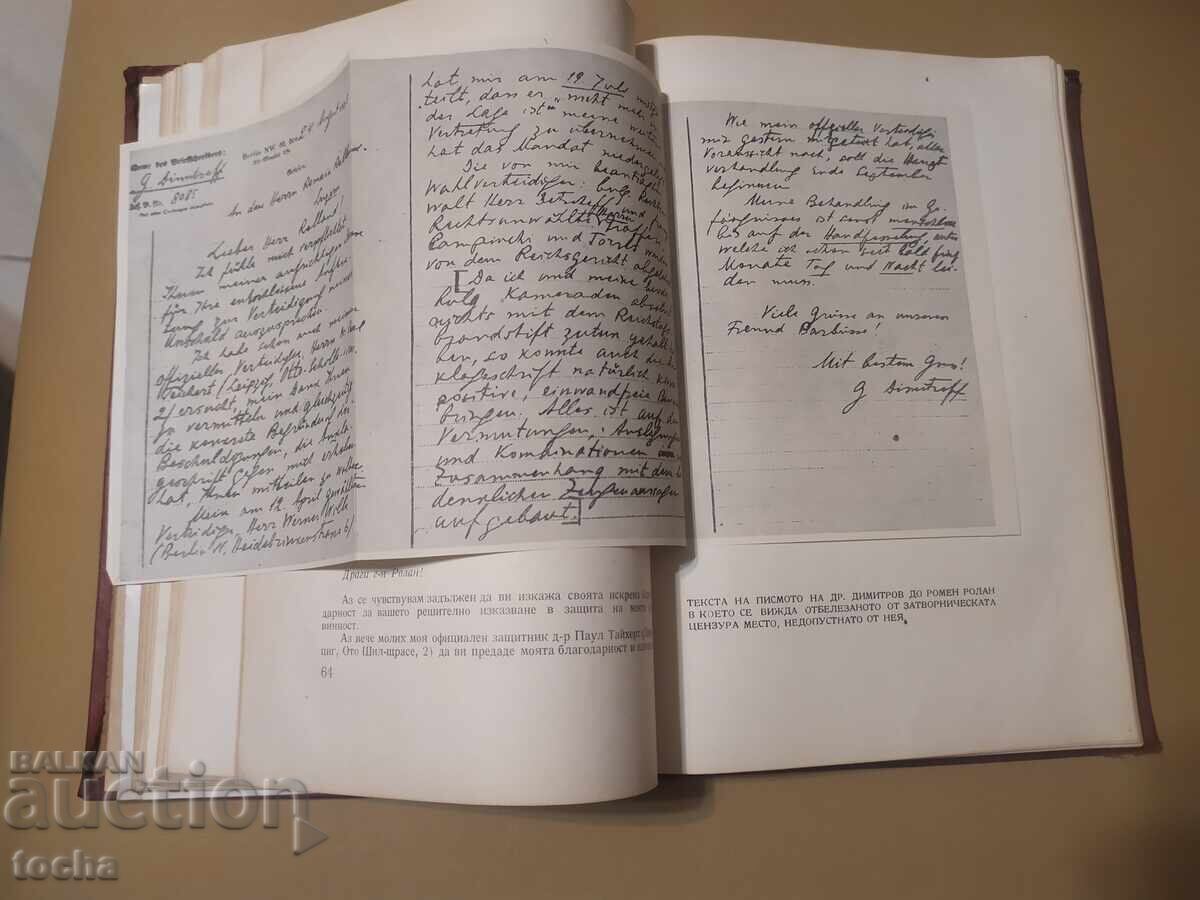 Name des Briefschreibers:
G Dimitroff
Berlin NW, 24 August
An den Herrn Romain Rolland
Lieber Herr Rolland!
Ich fühle mich verpflichtet
Ihnen meinen aufrichtigen
für Ihre entschlossene
zur Verteidigung meiner
Unschuld auszusprechen.
Ich habe schon auch meinen
offizieller Verteidiger, Herrn
Teichert / Leipzig, Otto-Schill-str.
2/ ersucht, mein Dank Ihnen
zu vermitteln und gleichzeitig
die konkrete Begründung der
Beschuldigungen, die
gegen mich erhoben
hat, Ihnen mitteilen zu
Mein am 12. April gewählten
Verteidiger, Herr Werner Wille
/Berlin N.
hat, mir am 19. Juls
teilt, dass er "nicht mehr in
der Lage ist" meine
Vertretung zu übernehmen
hat das Mandat niedergelegt
Die von mir
Wahlverteidiger: bulg.
walt Herr Detscheff und
Rechtsanwälte
Campinchi und Torrès
von dem Reichsgericht
[Da ich und meine
bulg. Kameraden absolut
nichts mit dem
brandstift zutun
ben, so konnte auch die
klageschrift natürlich
positive, einwandfreie
bringen. Alles ist auf
Vermutungen, Auslegungen
und Kombinationen
Zusammenhang mit den
Zeugenaussagen
aufgebaut.]
Wie mein offizieller Verteidiger
mir gestern mitgeteilt hat, aller
Voraussicht nach, soll die Haupt
verhandlung Ende September
beginnen
Meine Behandlung im Ge
fängnisses ist sonst menschliche
bis auf der Handfesselung, unter
welche ich schon seit bald fünf
Monate Tag und Nacht lei-
den muss.
Viele Grüsse an unseren
Freund Barbüsse!
Mit bestem Grus!
G Dimitroff
Драги г-н Ролан!
Аз се чувствувам задължен да ви изкажа своята искрена
дарност за вашето решително изказване в защита на моята
винност.
Аз вече молих моя официален защитник д-р Паул Тайхерт
циг, Ото Шил-щрасе, 2) да ви предаде моята благодарност и
64
ТЕКСТА НА ПИСМОТО НА ДР. ДИМИТРОВ ДО РОМЕН РОЛАН
В КОЕТО СЕ ВИЖДА ОТБЕЛЕЗАНОТО ОТ ЗАТВОРНИЧЕСКАТА
ЦЕНЗУРА МЯСТО, НЕДОПУСТНАТО ОТ НЕЯ.
BALKAN
auction
tocha